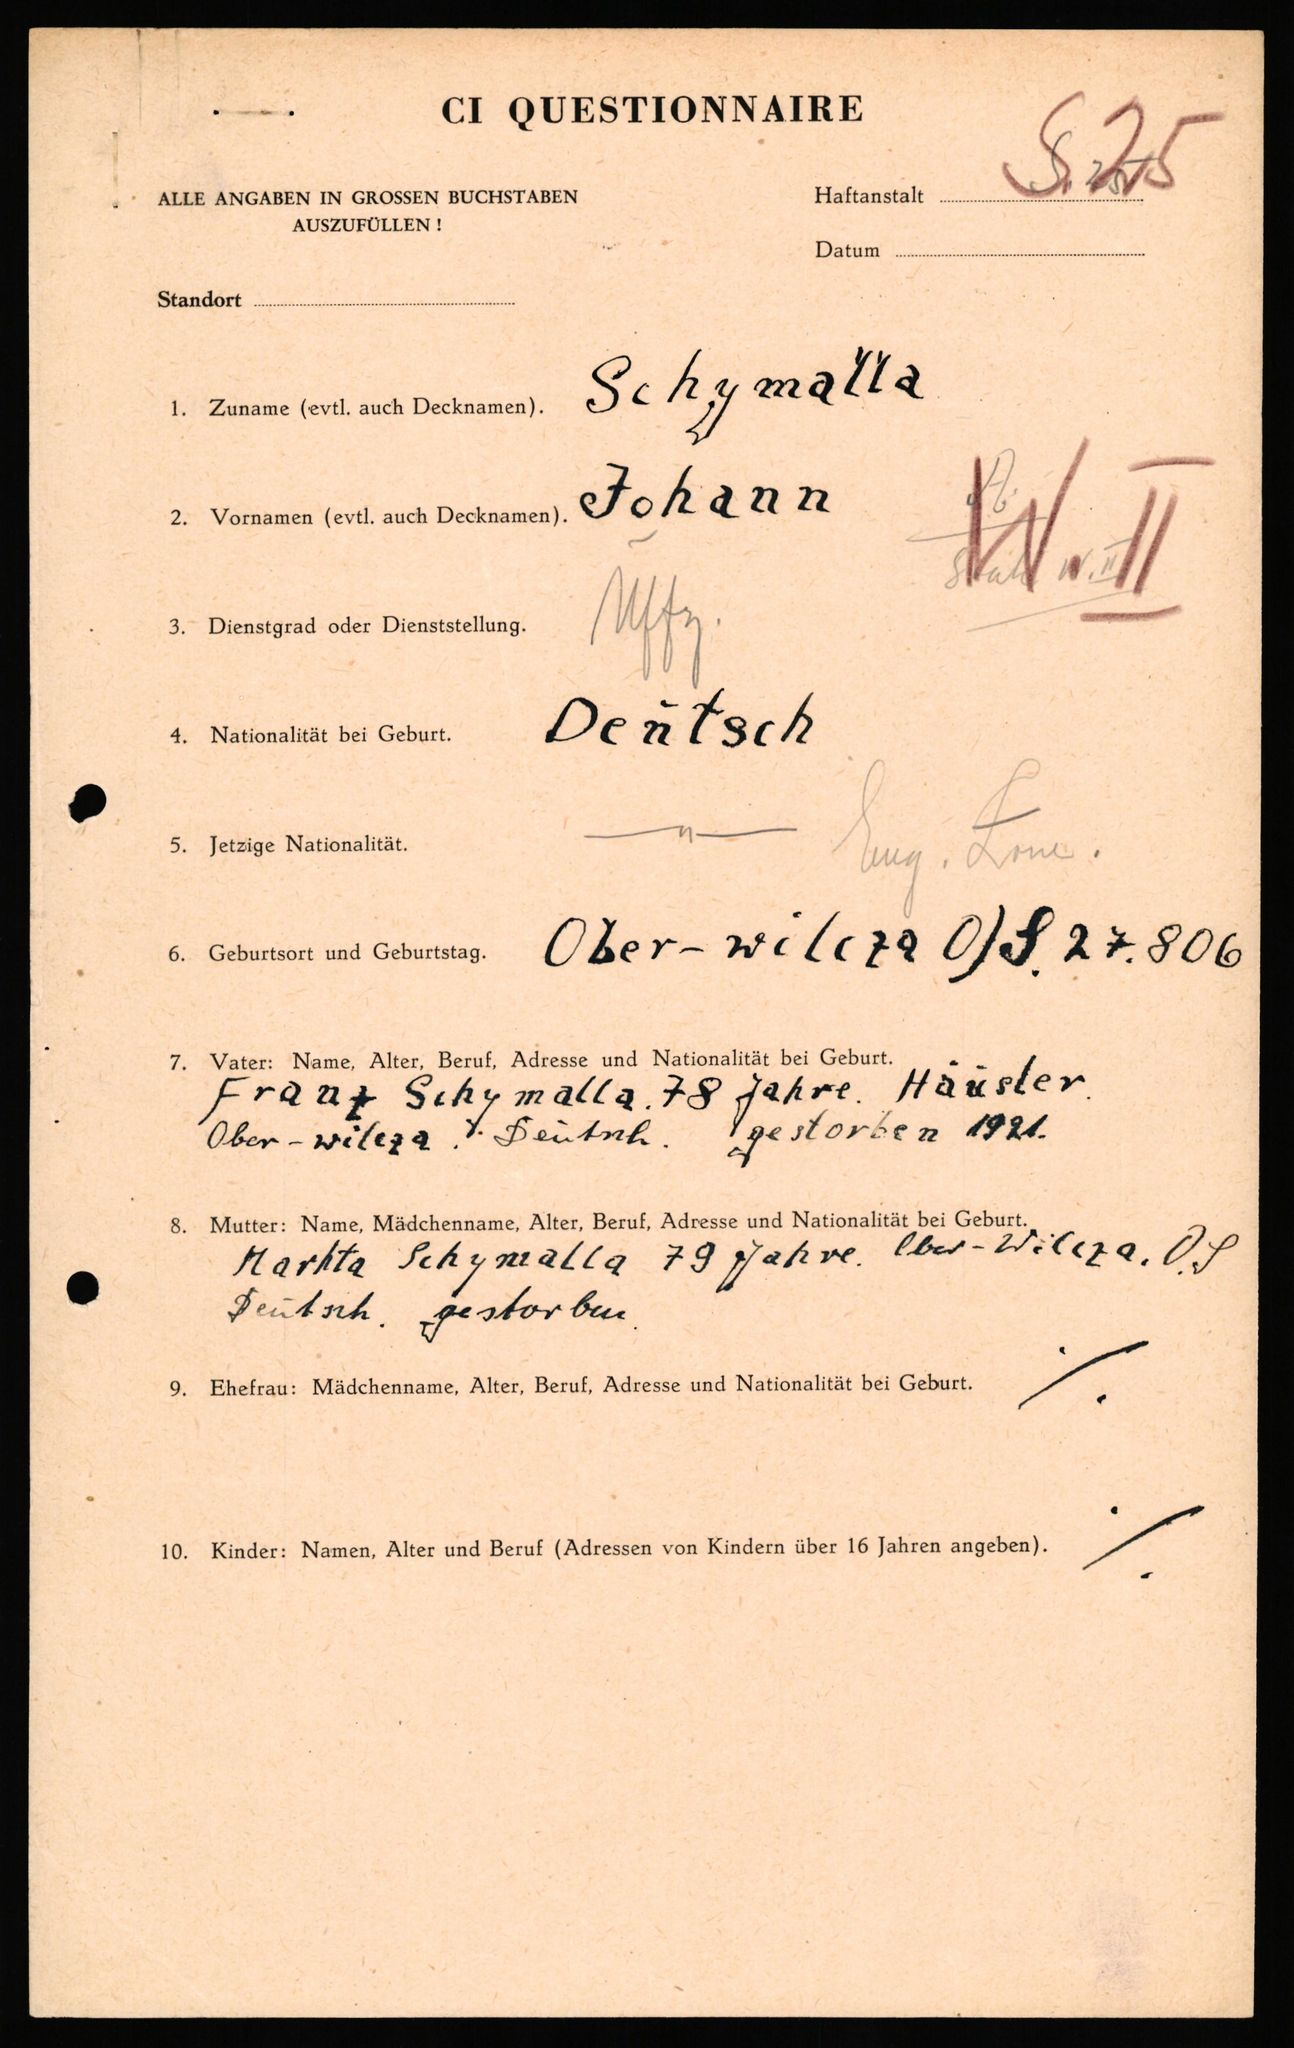 CI QUESTIONNAIRE
S. 75
ALLE ANGABEN IN GROSSEN BUCHSTABEN
AUSZUFÜLLEN !
Haftanstalt
Datum
Standort
1. Zuname (evtl. auch Decknamen). Schymalla
2. Vornamen (evtl. auch Decknamen). Johann
W II
W. II
3. Dienstgrad oder Dienststellung. Uffz.
4. Nationalität bei Geburt. Deutsch
5. Jetzige Nationalität. — " — Eng. Zone.
6. Geburtsort und Geburtstag. Ober-wilcza O/S. 27. 806
7. Vater: Name, Alter, Beruf, Adresse und Nationalität bei Geburt.
Franz Schymalla. 78 Jahre. Häusler.
Ober-wilcza. Deutsch. gestorben 1921.
8. Mutter: Name, Mädchenname, Alter, Beruf, Adresse und Nationalität bei Geburt.
Schymalla 79 Jahre. Ober-Wilcza. O.S
Deutsch. gestorben.
9. Ehefrau: Mädchenname, Alter, Beruf, Adresse und Nationalität bei Geburt. ./.
10. Kinder: Namen, Alter und Beruf (Adressen von Kindern über 16 Jahren angeben). ./.